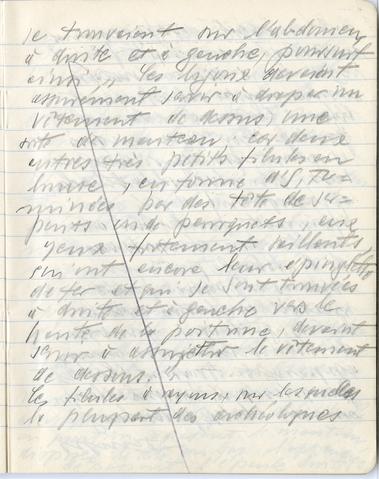 se trouvaient sur l'abdomen
à droite et à gauche, poursuit
ainsi „ Les devaient
assurément servir à draper un
vêtement de dessus, une
sorte de manteau; car deux
autres très petites fibules en
bronze, en forme d'S, ter=
minées par des tête de ser=
pents ou de perroquets, aux
yeux fortement saillants,
qui ont encore leur épinglette
de fer et qui se sont trouvées
à droite et à gauche vers le
haut de la poitrine, devaient
servir à assujettir le vêtement
de dessous."
Les fibules à rayons, sur lesquelles
la plupart des archéologues